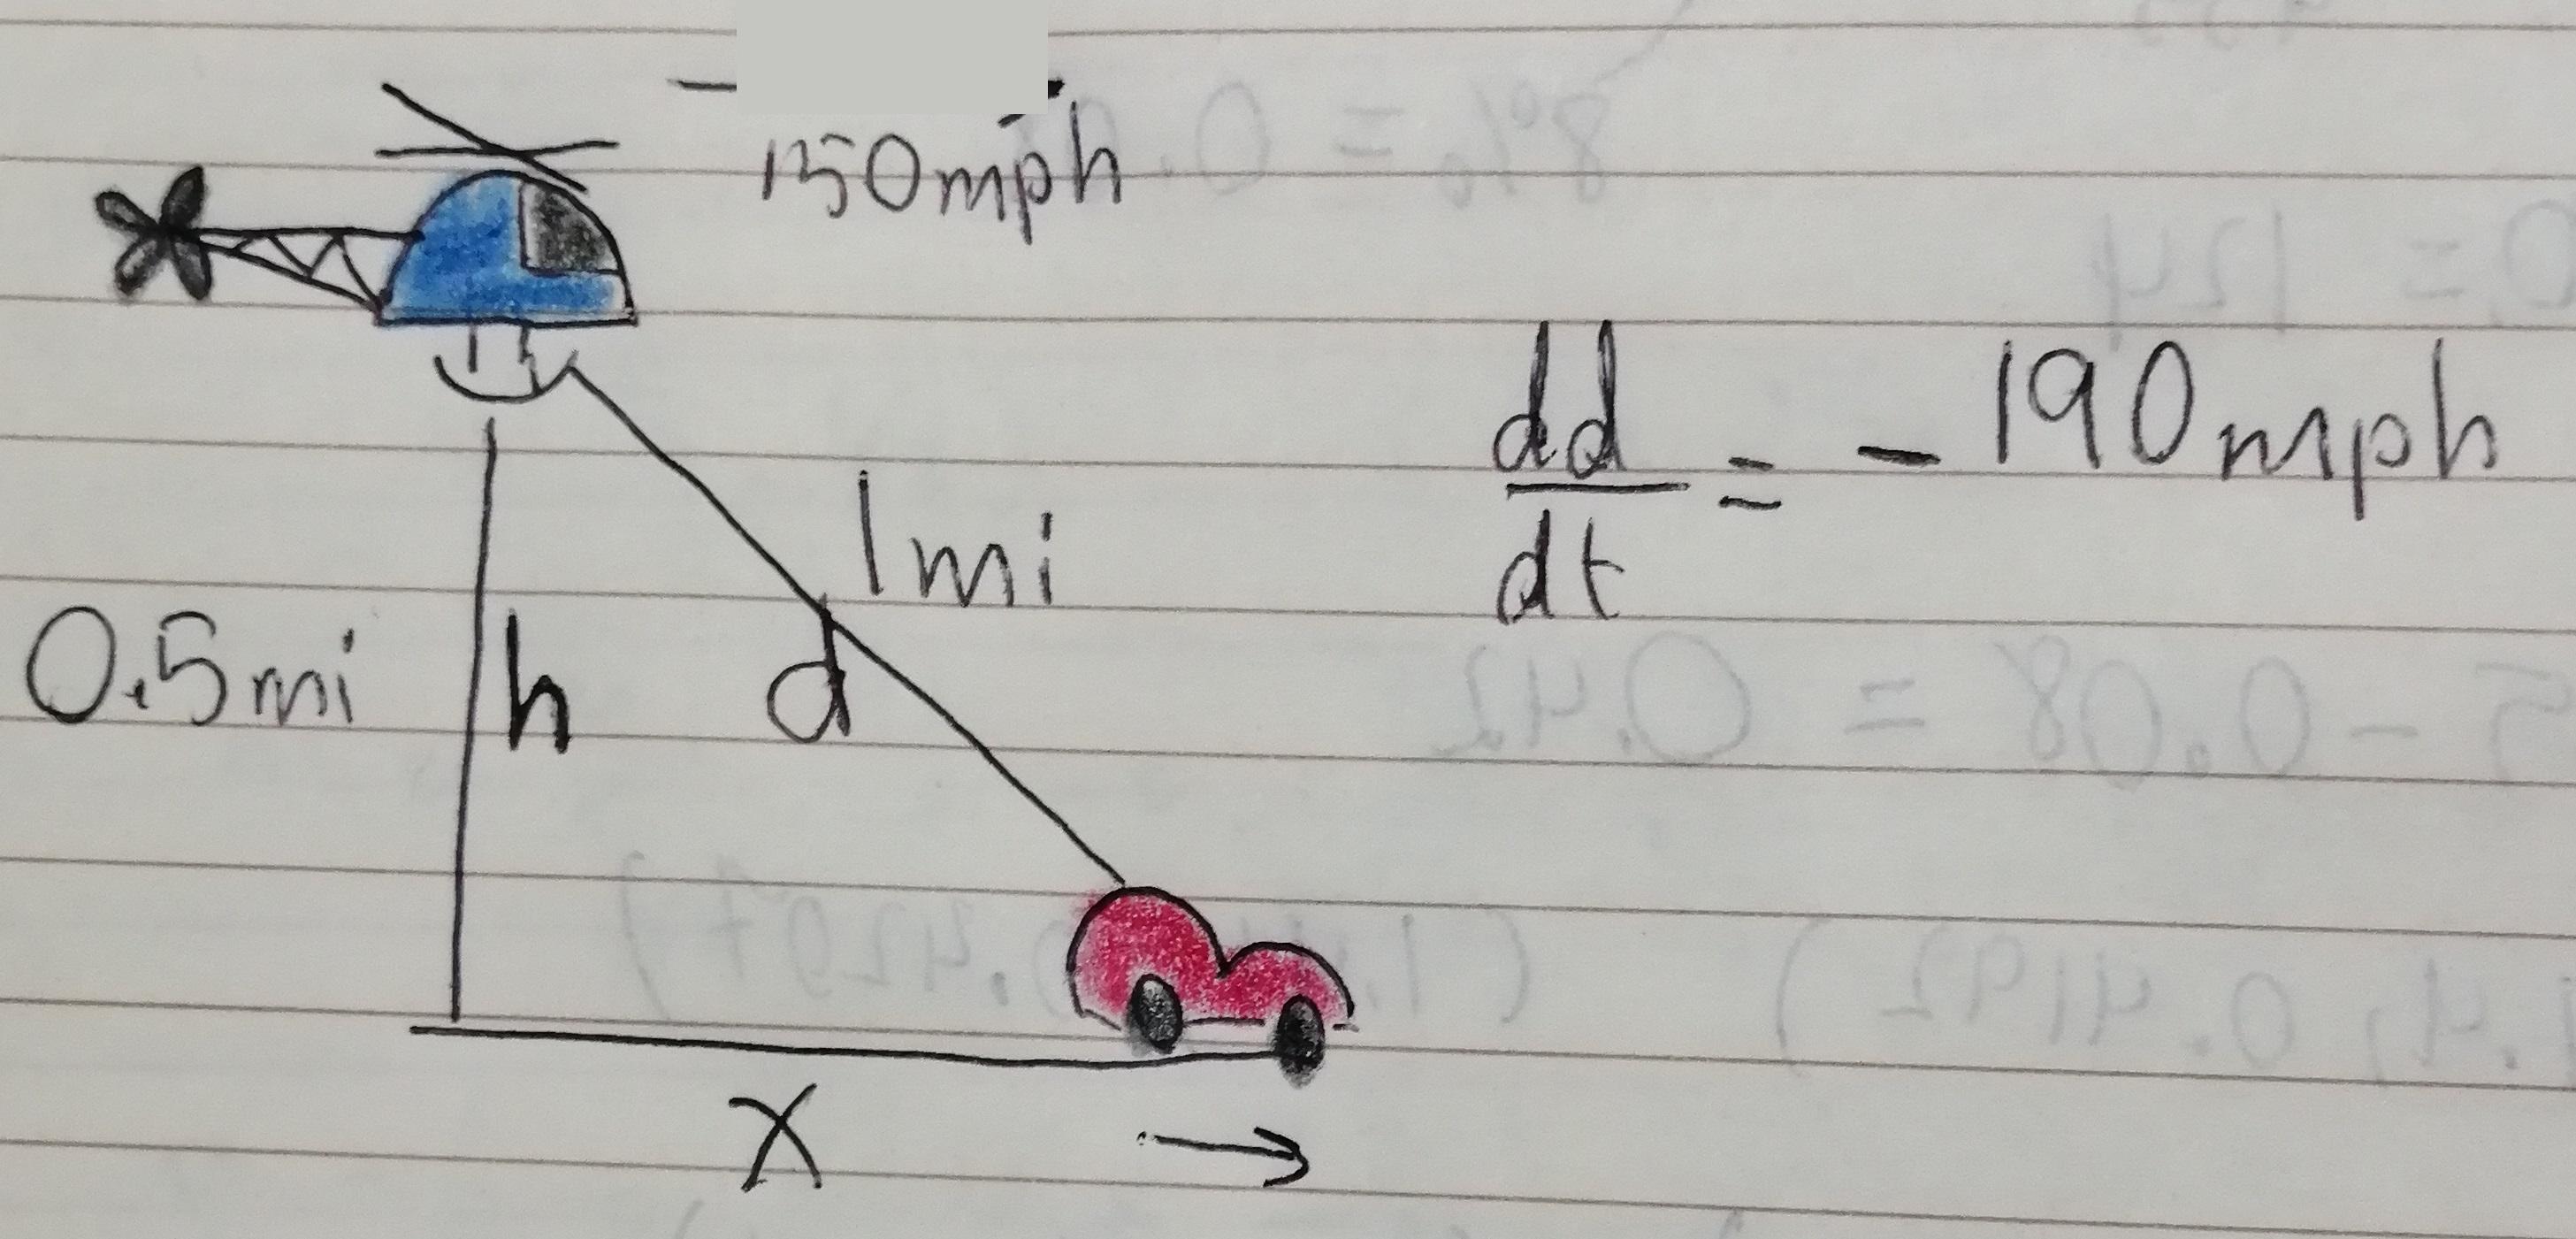 150mph
dd/dt = - 190mph
1mi
0.5mi h d
x →